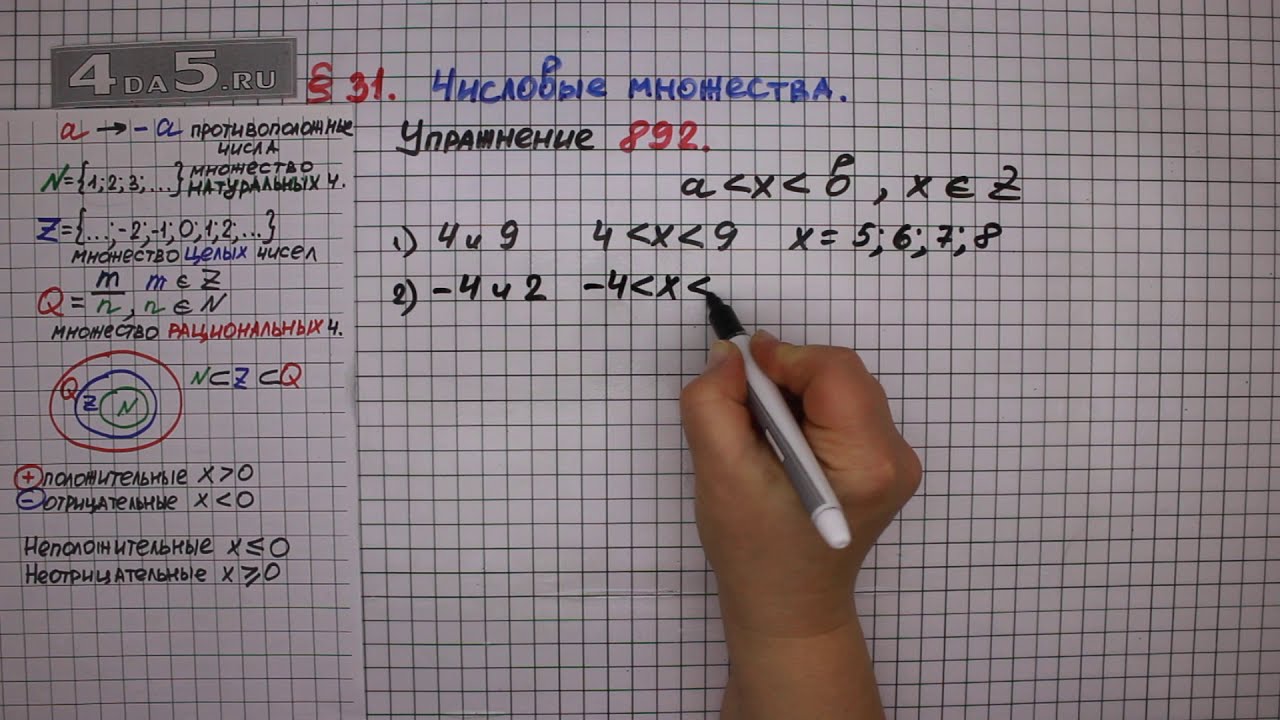 4DA5.RU
§ 31. Числовые множества.
Упражнение 892.
a < x < b , x ∈ Z
1) 4 и 9 4 < x < 9 x = 5; 6; 7; 8
2) -4 и 2 -4 < x <
a → -a противоположные
числа
N = {1; 2; 3; ...} множество
натуральных ч.
Z = {...; -2; -1; 0; 1; 2; ...}
множество целых чисел
Q = m/n , m ∈ Z
n ∈ N
множество РАЦИОНАЛЬНЫХ ч.
Q Z N
N ⊂ Z ⊂ Q
+ положительные x > 0
- отрицательные x < 0
Неположительные x ≤ 0
Неотрицательные x ⩾ 0